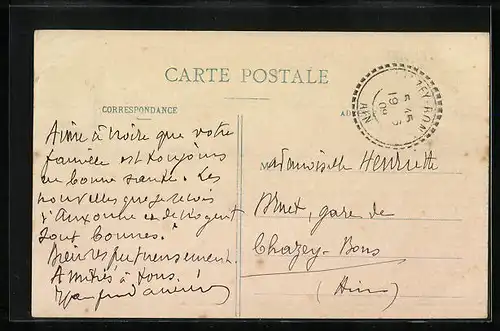 CARTE POSTALE
CORRESPONDANCE
Aime à croire que votre
famille est toujours
en bonne santé. Les
nouvelles que je reçois
d'Auxonne et de Nogent
sont bonnes.
Bien respectueusement.
Amitiés à tous.
Mademoiselle Henriette
Brunet, gare de
Chazey-Bons
(Ain)
5 45
19 3
09
AIN